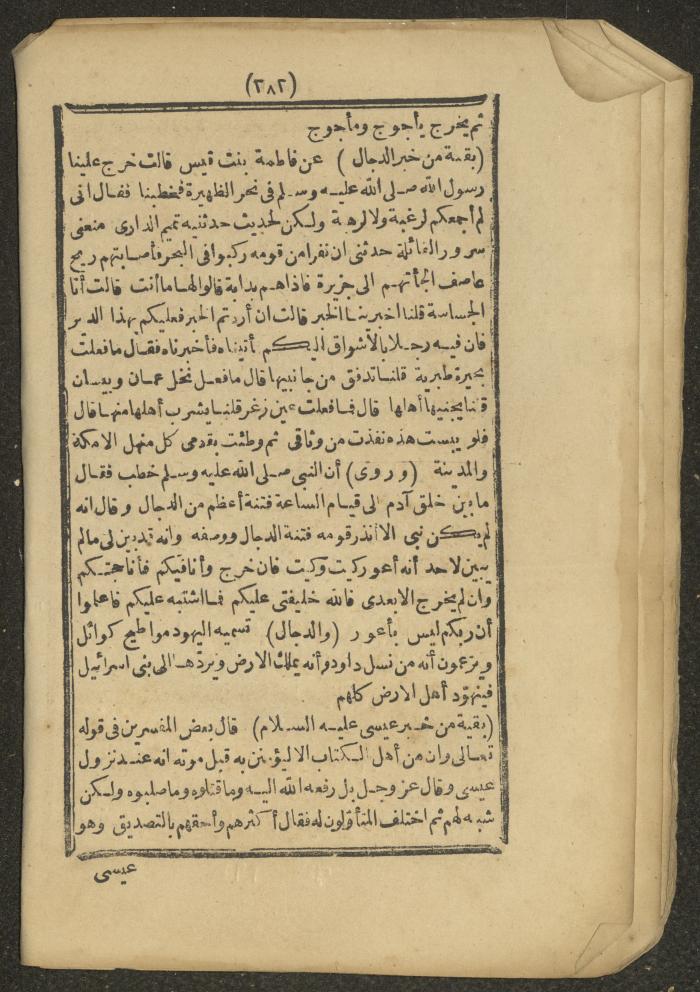 (٢٨٢)
ثم يخرج يأجوج ومأجوج
(بقية من خبر الدجال) عن فاطمة بنت قيس قالت خرج علينا
رسول الله صلى الله عليه وسلم في نحر الظهيرة فخطبنا فقال انى
لم أجمعكم لرغبة ولا لرهبة ولكن لحديث حدثنيه تميم الدارى منعنى
سرور القائلة حدثنى ان نفرا من قومه ركبوا فى البحر فأصابتهم ريح
عاصف ألجأتهم الى جزيرة فاذاهم بدابة قالوا لها ما أنت قالت أنا
الجساسة قلنا اخبرينا الخبر قالت ان أردتم الخبر فعليكم بهذا الدير
فان فيه رجلا بالأشواق اليكم أتيناه فأخبرناه فقال ما فعلت
بحيرة طبرية قلنا تدفق من جانبيها قال ما فعل نخل عمان وبيسان
قلنا يجنيها أهلها قال فما فعلت عين زغر قلنا يشرب أهلها منها قال
فلو يبست هذه نفذت من وثاقى ثم وطئت بقدمى كل منهل الا مكة
والمدينة (وروى) أن النبى صلى الله عليه وسلم خطب فقال
ما بين خلق آدم الى قيام الساعة فتنة أعظم من الدجال وقال انه
لم يكن نبى الا أنذر قومه فتنة الدجال ووصفه وانه قد بين لى مالم
يبين لاحد أنه أعور كيت وكيت فان خرج وأنا فيكم فأنا حجيجكم
وان لم يخرج الا بعدى فالله خليفتى عليكم فما اشتبه عليكم فاعلموا
أن ربكم ليس بأعور (والدجال) تسميه اليهود مواطيح كوائل
ويزعمون أنه من نسل داود وأنه يملك الارض ويردها الى بنى اسرائيل
فيتهود أهل الارض كلهم
(بقية من خبر عيسى عليه السلام) قال بعض المفسرين فى قوله
تعالى وان من أهل الكتاب الا ليؤمنن به قبل موته انه عند نزول
عيسى وقال عز وجل بل رفعه الله اليه وما قتلوه وما صلبوه ولكن
شبه لهم ثم اختلف المتأولون له فقال أكثرهم وأحقهم بالتصديق وهو
عيسى